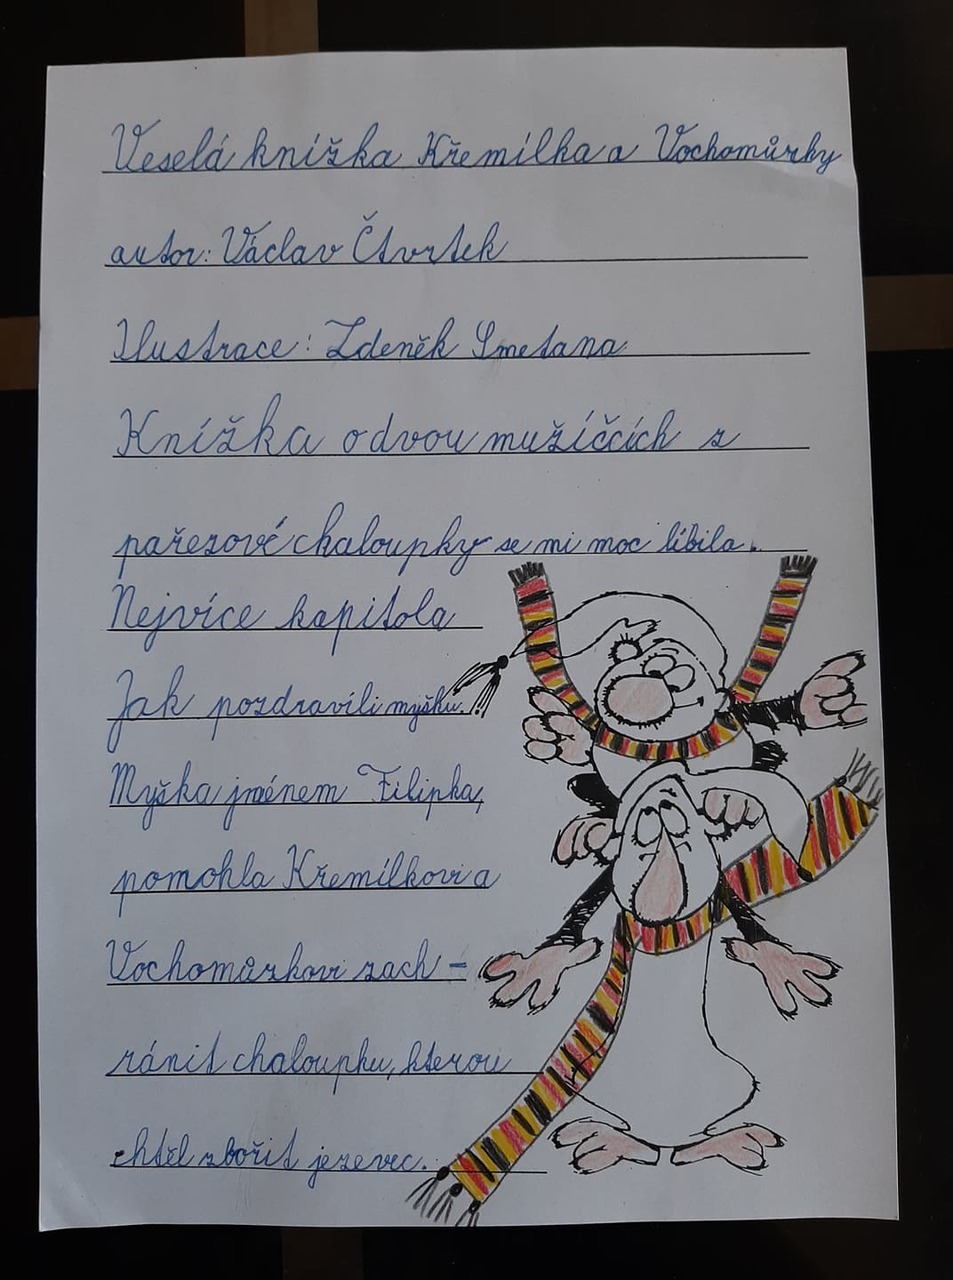 Veselá knížka Křemílka a Vochomůrky
autor: Václav Čtvrtek
Ilustrace: Zdeněk Smetana
Knížka o dvou mužíčcích z
pařezové chaloupky se mi moc líbila.
Nejvíce kapitola
Jak pozdravili myšku.
Myška jménem Filipka,
pomohla Křemílkovi a
Vochomůrkovi zach-
ránit chaloupku, kterou
chtěl zbořit jezevec.